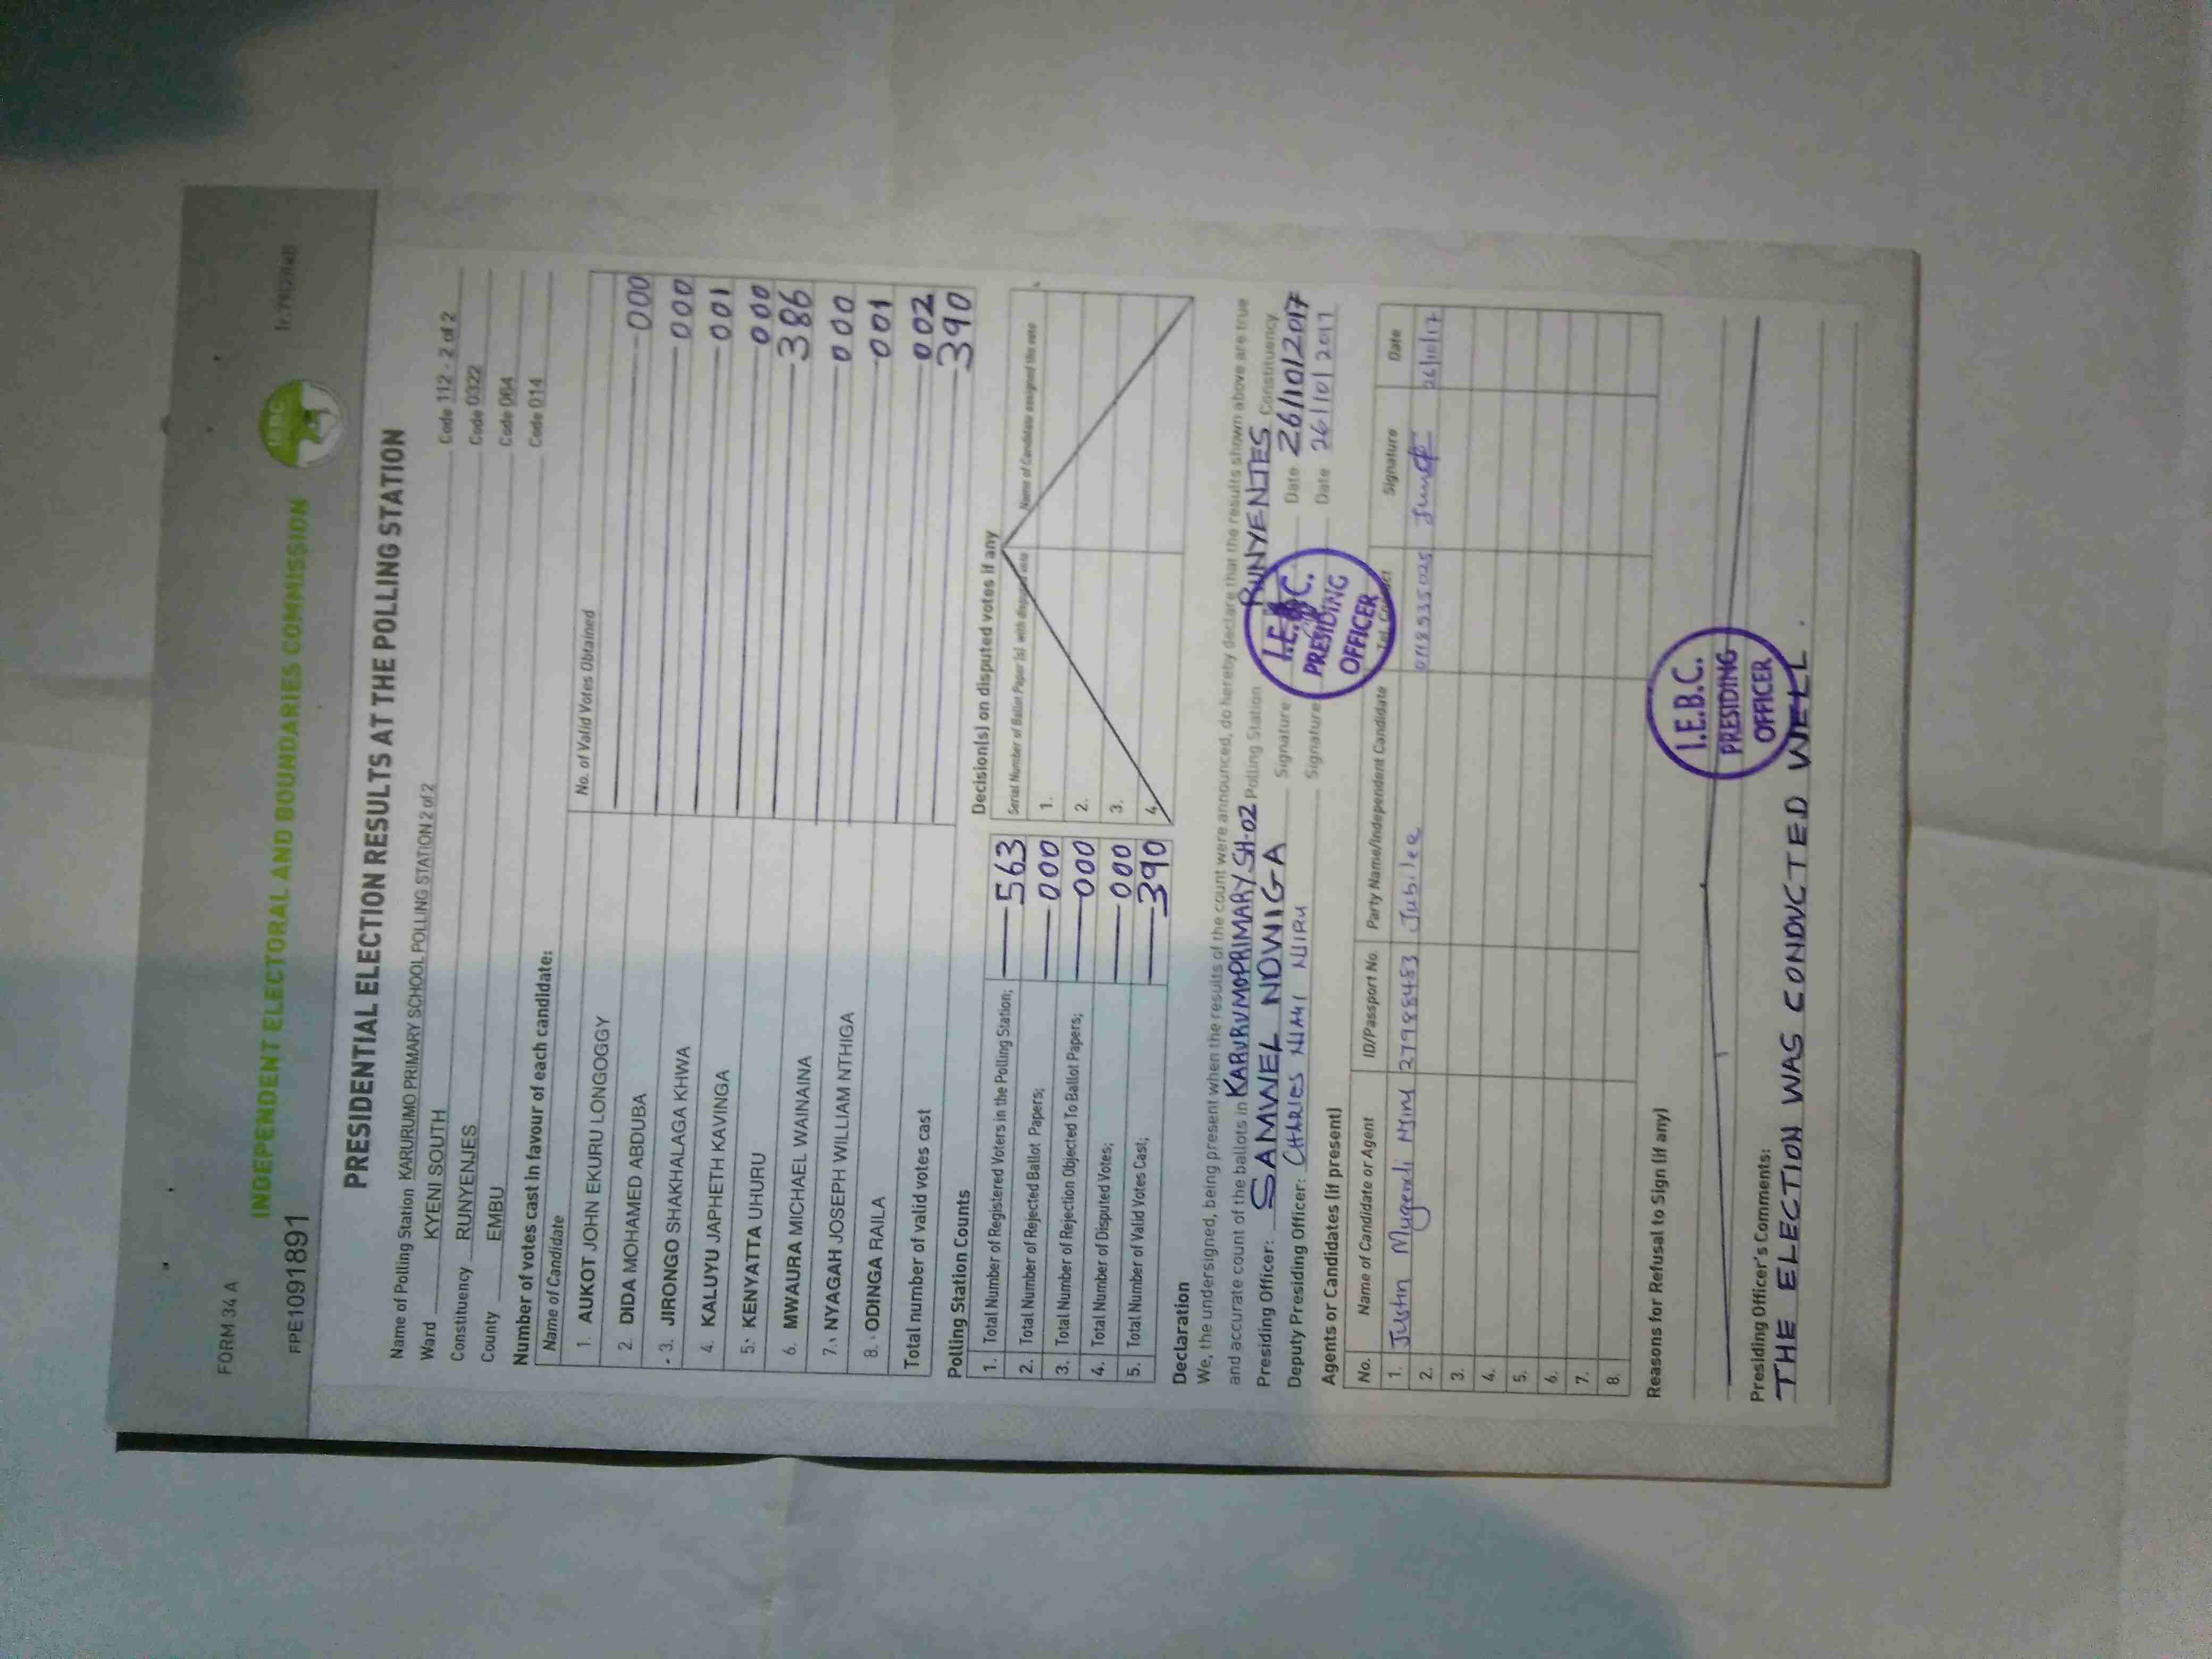 FORM 34 A
INDEPENDENT ELECTORAL AND BOUNDARIES COMMISSION
IEBC
FPE1091891
PRESIDENTIAL ELECTION RESULTS AT THE POLLING STATION
Name of Polling Station KARURUMO PRIMARY SCHOOL POLLING STATION 2 of 2 Code 112 - 2 of 2
Ward KYENI SOUTH Code 0322
Constituency RUNYENJES Code 064
County EMBU Code 014
Number of votes cast in favour of each candidate:
Name of Candidate No. of Valid Votes Obtained
1. AUKOT JOHN EKURU LONGOGGY 000
2. DIDA MOHAMED ABDUBA 000
3. JIRONGO SHAKHALAGA KHWA 001
4. KALUYU JAPHETH KAVINGA 000
5. KENYATTA UHURU 386
6. MWAURA MICHAEL WAINAINA 000
7. NYAGAH JOSEPH WILLIAM NTHIGA 001
8. ODINGA RAILA 002
Total number of valid votes cast 390
Polling Station Counts Decision(s) on disputed votes if any
1. Total Number of Registered Voters in the Polling Station; 563
2. Total Number of Rejected Ballot Papers; 000
3. Total Number of Rejection Objected To Ballot Papers; 000
4. Total Number of Disputed Votes; 000
5. Total Number of Valid Votes Cast; 390
Serial Number of Ballot Paper (s) with disputed vote Name of Candidate assigned the vote
1.
2.
3.
4.
Declaration
We, the undersigned, being present when the results of the count were announced, do hereby declare that the results shown above are true
and accurate count of the ballots in KARURUMO PRIMARY SH-02 Polling Station RUNYENJES Constituency
Presiding Officer: SAMWEL NDWIGA Signature Date 26/10/2017
Deputy Presiding Officer: CHARLES Signature Date 26/10/2017
I.E.B.C.
PRESIDING
OFFICER
Agents or Candidates (if present)
No. Name of Candidate or Agent ID/Passport No. Party Name/Independent Candidate Tel. Contact Signature Date
1. Justin Mugendi 27988483 Jubilee 0718535025 26/10/17
2.
3.
4.
5.
6.
7.
8.
Reasons for Refusal to Sign (if any)
I.E.B.C.
PRESIDING
OFFICER
Presiding Officer's Comments:
THE ELECTION WAS CONDUCTED WELL.